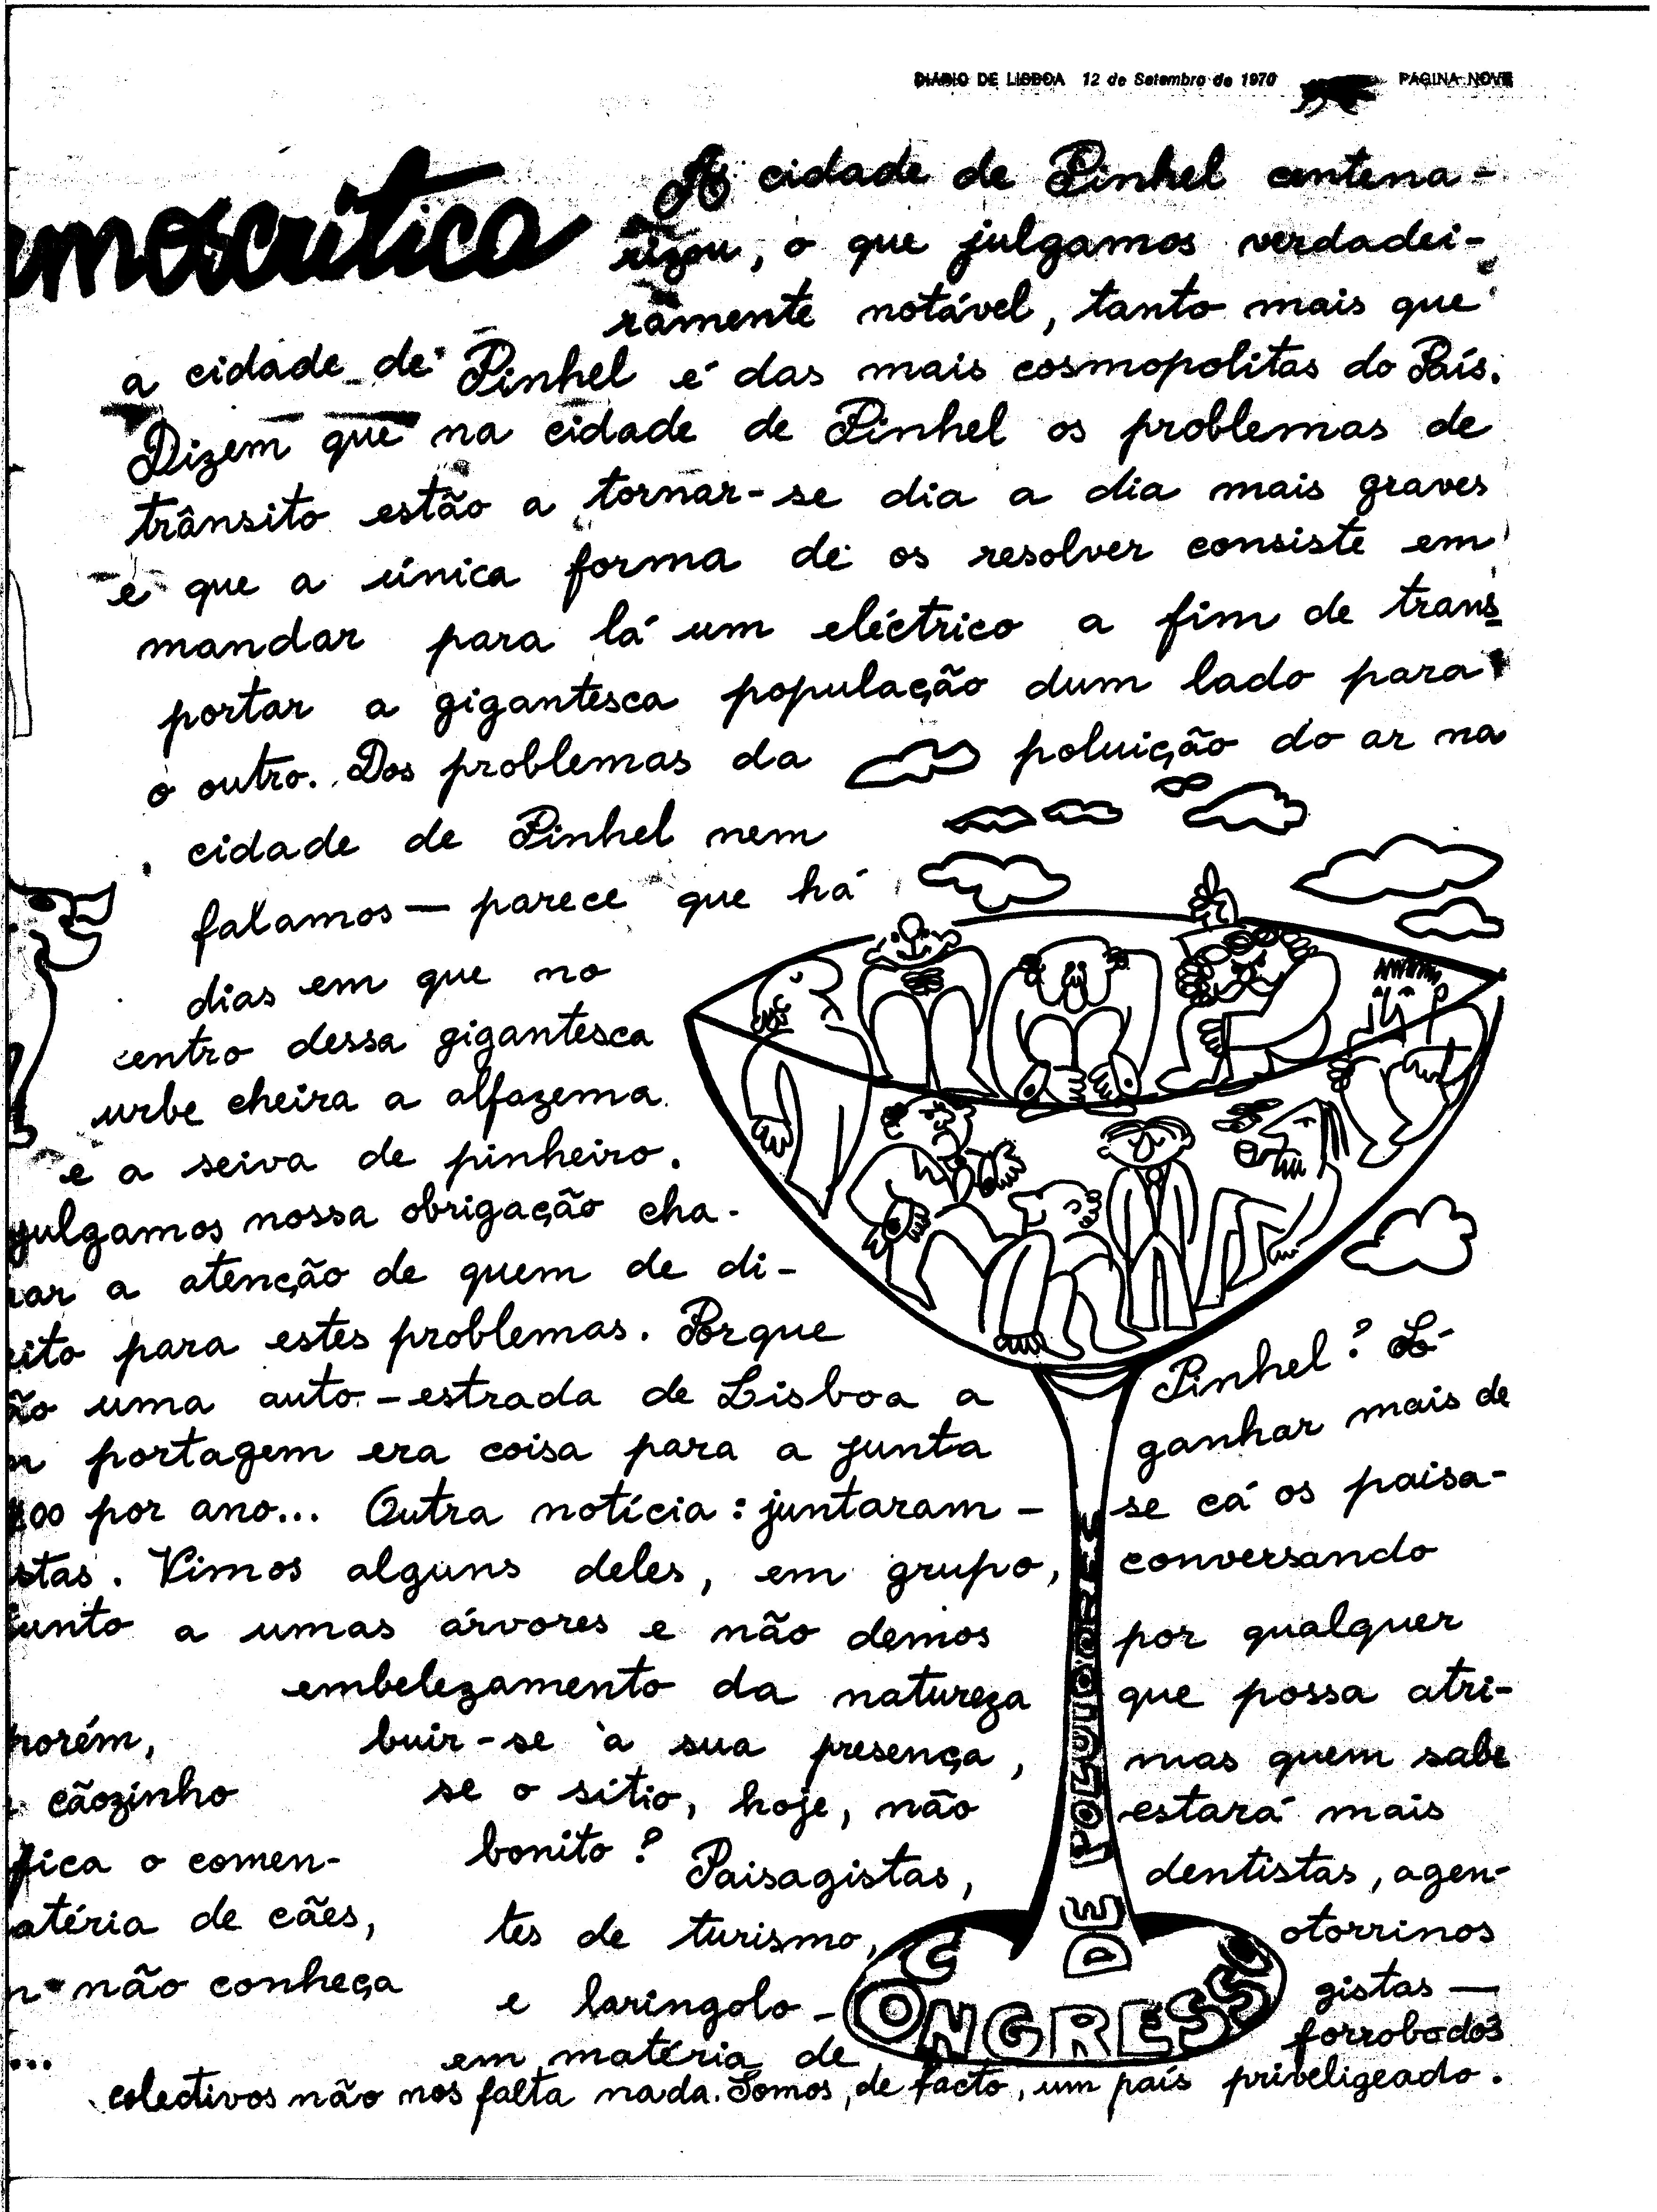 DIÁRIO DE LISBOA 12 de Setembro de 1970 PÁGINA NOVE
moscritica
A cidade de Pinhel centena-
rizou, o que julgamos verdadei-
ramente notável, tanto mais que
a cidade de Pinhel é das mais cosmopolitas do País.
Dizem que na cidade de Pinhel os problemas de
trânsito estão a tornar-se dia a dia mais graves
e que a única forma de os resolver consiste em
mandar para lá um eléctrico a fim de trans
portar a gigantesca população dum lado para
o outro. Dos problemas da poluição do ar na
cidade de Pinhel nem
falamos — parece que há
dias em que no
centro dessa gigantesca
urbe cheira a alfazema
e a seiva de pinheiro.
julgamos nossa obrigação cha-
ar a atenção de quem de di-
eito para estes problemas. Porque
ão uma auto-estrada de Lisboa a Pinhel? Só
portagem era coisa para a junta ganhar mais de
00 por ano... Outra notícia: juntaram-se cá os paisa-
stas. Vimos alguns deles, em grupo, conversando
junto a umas árvores e não demos por qualquer
embelezamento da natureza que possa atri-
buir-se à sua presença, mas quem sabe
se o sítio, hoje, não estará mais
bonito? Paisagistas, dentistas, agen-
tes de turismo, otorrinos
e laringolo-gistas —
em matéria de forrobodós
colectivos não nos falta nada. Somos, de facto, um país priveligeado.
porém,
cãozinho
fica o comen-
atéria de cães,
não conheça
...
CONGRESSO DE POLUIDORES